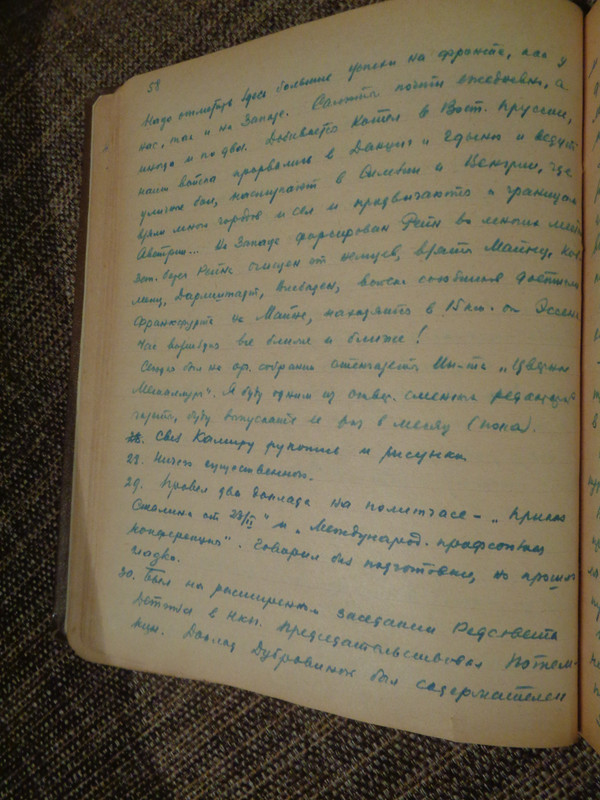 54
Надо отметить здесь большие успехи на фронте, как у
нас, так и на Западе. Салюты почти ежедневн, а
иногда и по два. Добивается котел в Вост. Пруссии,
наши войска прорвались в Данциг и Гдыню и ведут
уличные бои, наступают в Силезии и Венгрии, где
взяли много городов и сел и продвигаются к границам
Австрии... На Западе форсирован Рейн во многих
Зап. берег Рейна очищен от немцев, взяты Майнц,
Дармштадт, Висбаден, войска союзников достигли
Франкфурта на Майне, находятся в 15 км. от Эссена
Час победы все ближе и ближе!
Сегодня был на орг. собрании стенгазеты Ин-та „Цветная
Металлург". Я буду одним из ответ. сменных редакторов
газеты, буду выпускать ее раз в месяц (пока).
28. Свез Камиру рукопись и рисунки
28. Ничего существенного.
29. Провел два доклада на политчасе – „Приказ
Сталина от 23/II" и „Международ. профсоюзн
конференция". Говорил без подготовки, но прошло
гладко.
30. Был на расширенном заседании Редсовета
Детгиза в НКП. Председательствовал Потем-
кин. Доклад Дубровиной был содержателен